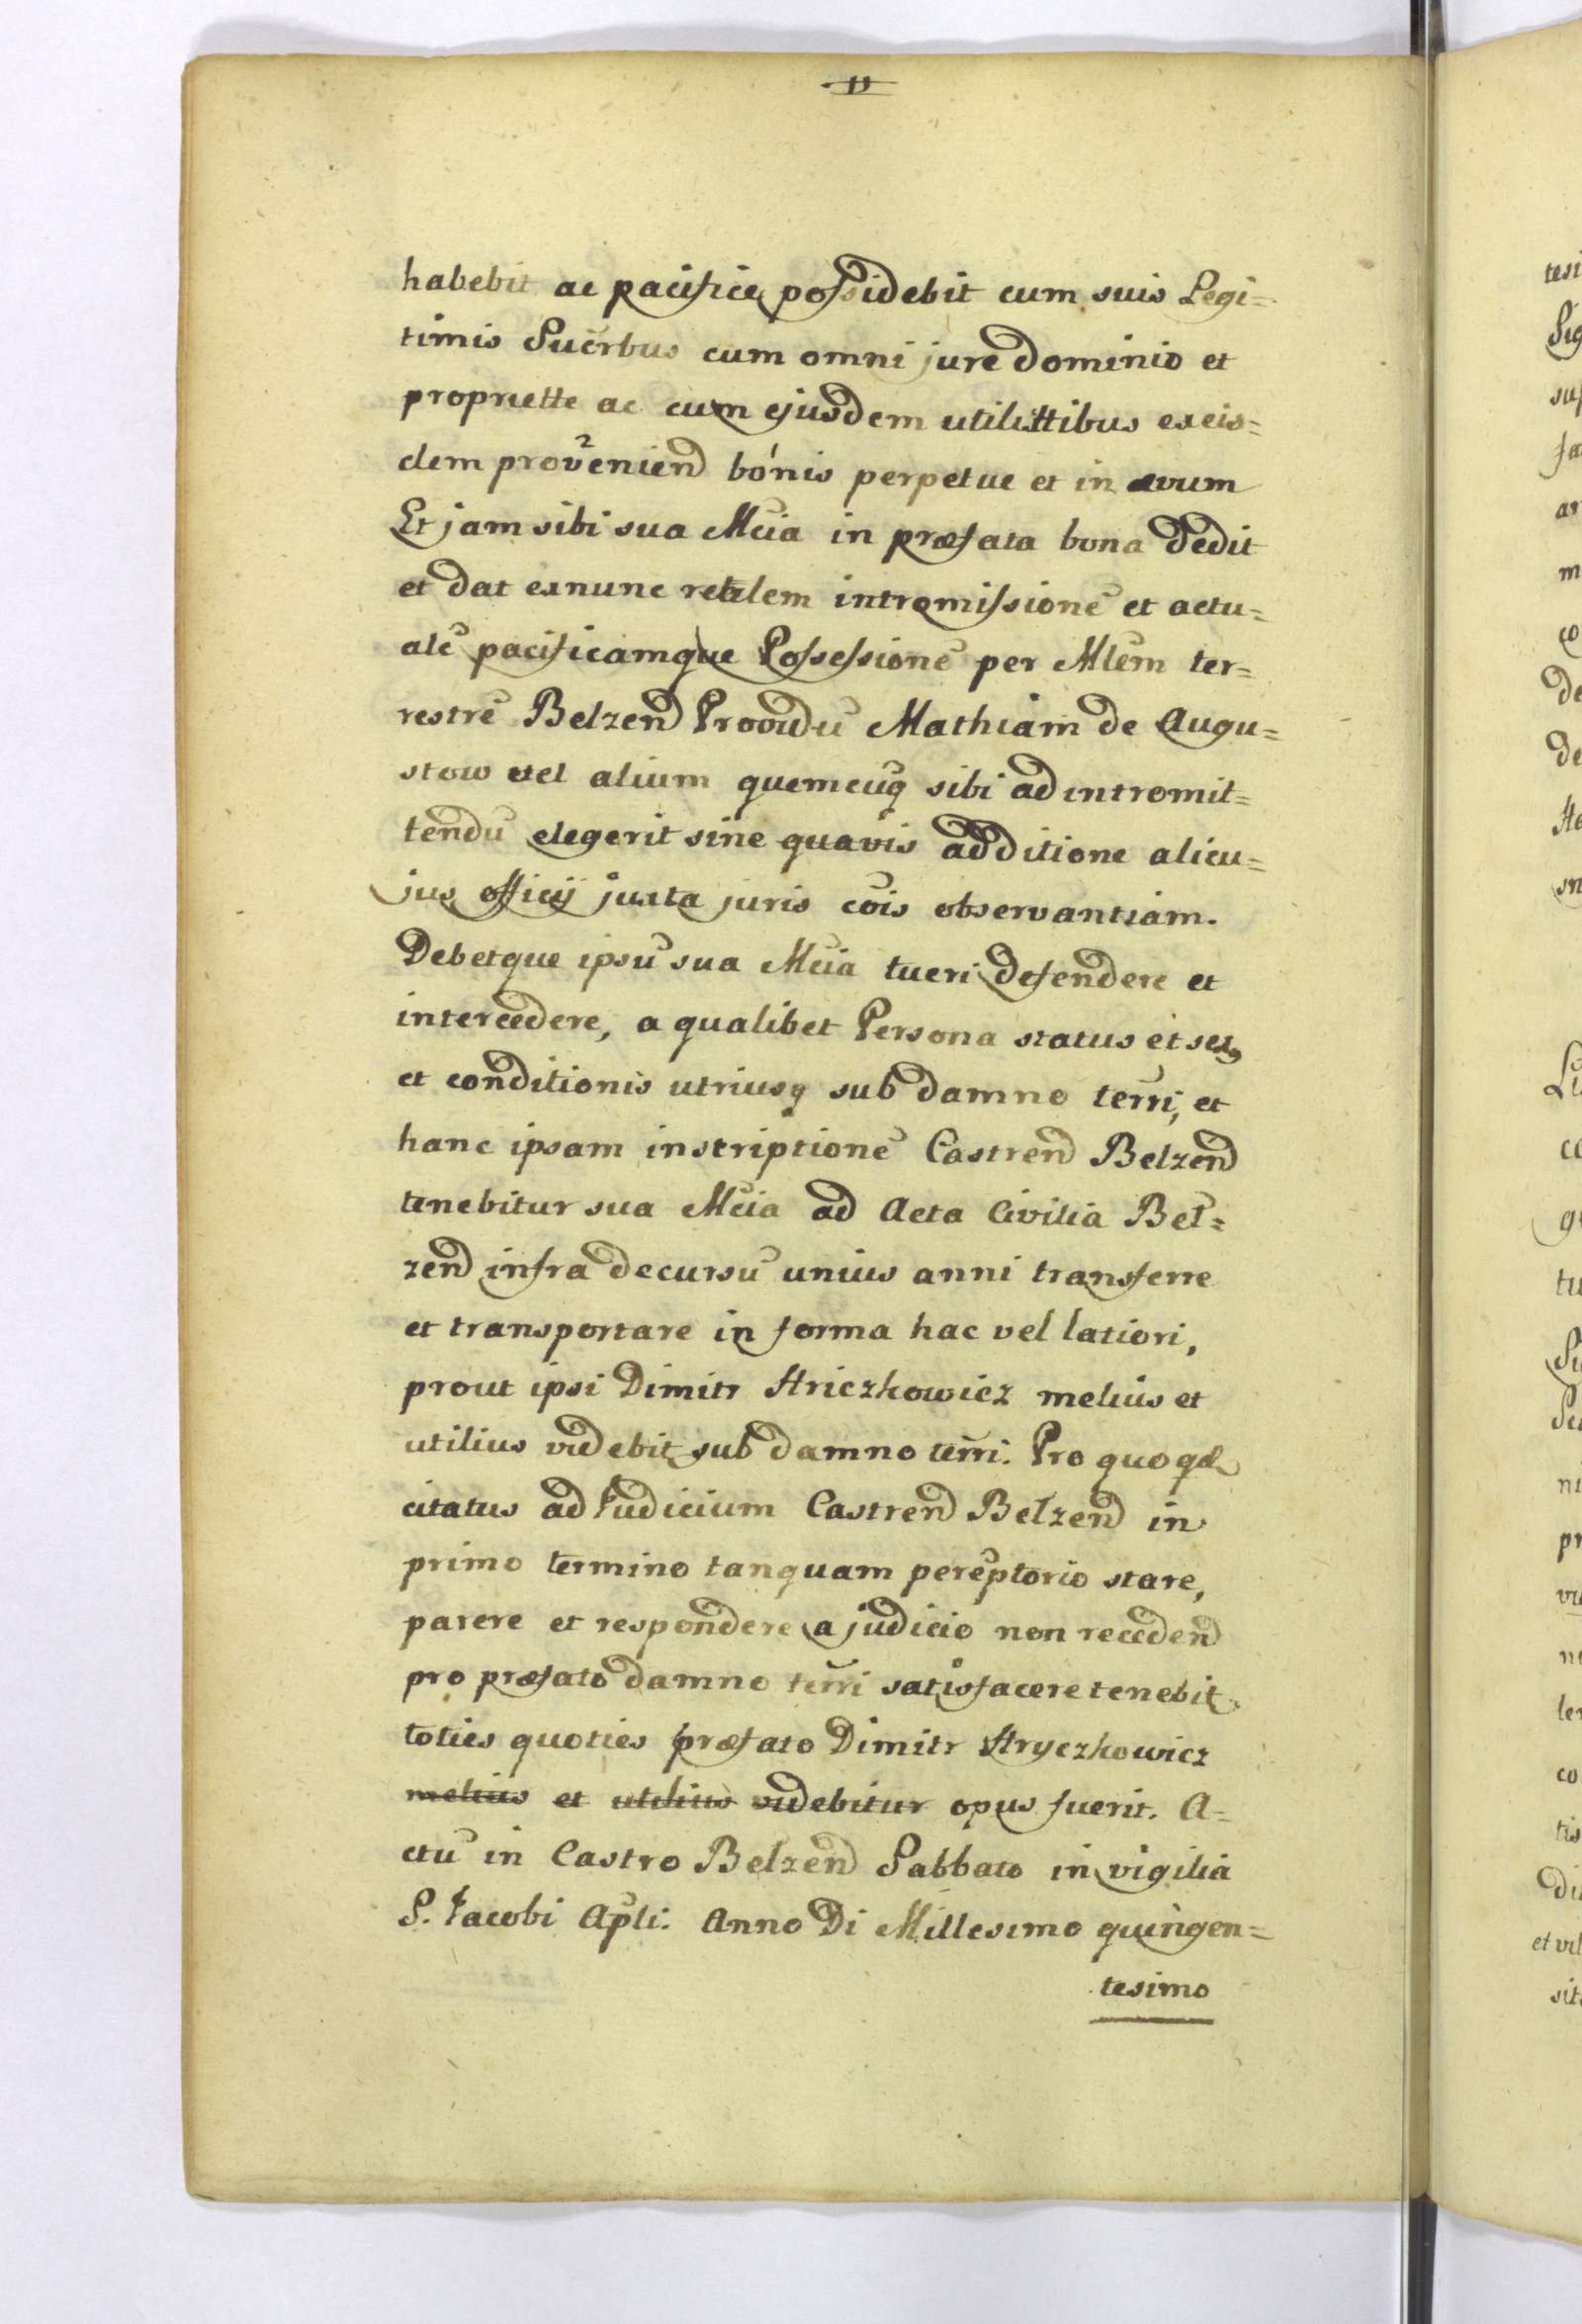 habebit ac pacifice possidebit cum suis Legi=
timis Succ̃rbus cum omni jure dominio et
propriette ac cum ejusdem utilittibus ex eis=
dem provenien̄d bonis perpetue et in ævum
Et jam sibi sua Mc̃ia in præfata bona dedit
et dat exnunc realem intromissionē et actu=
alē pacificamque Possessionē per Mlēm ter=
restrē Belzend Proou̅dū Mathiam de Augu=
stow vel alium quemcuq sibi ad intromit=
tendū elegerit sine quavis additione alicu=
jus officij juxta juris cõis observantiam.
Debetque ipsū sua Mc̃ia tueri defendere et
intercedere, a qualibet Persona status et sex9
et conditionis utriusq sub damno terr̃i, et
hanc ipsam inscriptionē Castrend Belzend
tenebitur sua Mc̃ia ad Acta Civilia Bel=
zend infra decursū unius anni transferre
et transportare in forma hac vel latiori,
prout ipsi Dimitr Striczkowicz melius et
utilius videbit sub damno terr̃i. Pro quo qd̄
citatus ad Judicium Castrend Belzend in
primo termino tanquam perēptorio stare,
parere et respondere a judicio non recedend
pro præfato damno terr̃i satisfacere tenebit
toties quoties præfato Dimitr Stryczkowicz
melius et utilius videbitur opus fuerit. A=
ctū in Castro Belzend Sabbato in vigilia
S. Jacobi Apl̃i. Anno Di Millesimo quingen=
tesimo